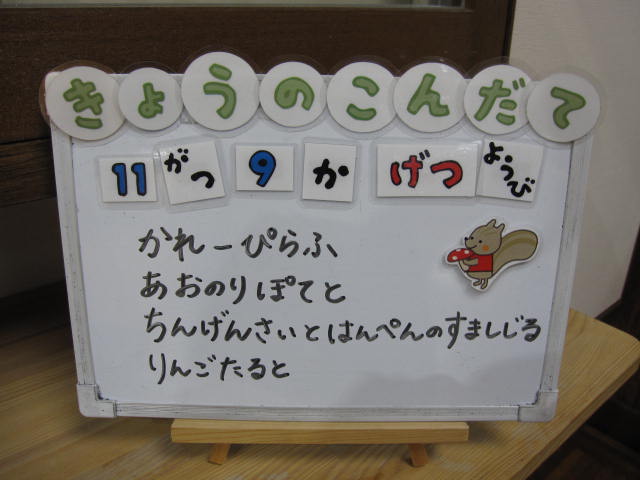 きょうのこんだて
11がつ9かげつようび
かれーぴらふ
あおのりぽてと
ちんげんさいとはんぺんのすましじる
りんごたると